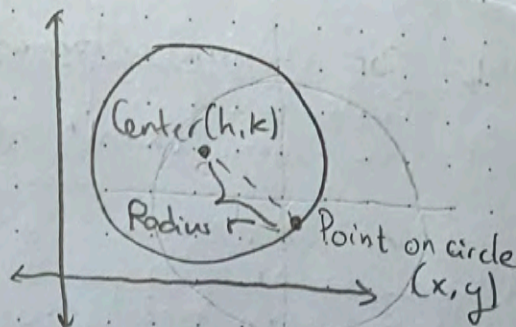 Center(h,k)
Radius r
Point on circle
(x,y)